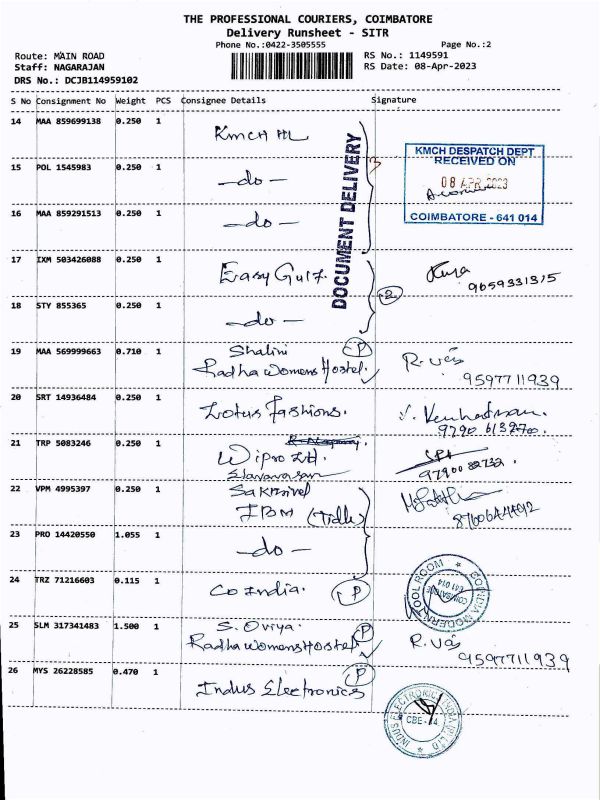 THE PROFESSIONAL COURIERS, COIMBATORE
Delivery Runsheet - SITR
Phone No.:0422-3505555 Page No.:2
Route: MAIN ROAD RS No.: 1149591
Staff: NAGARAJAN RS Date: 08-Apr-2023
DRS No.: DCJB114959102
S No Consignment No Weight PCS Consignee Details Signature
14 MAA 859699138 0.250 1 KMCH HL
DOCUMENT DELIVERY
3
KMCH DESPATCH DEPT
RECEIVED ON
08 APR 2023
COIMBATORE - 641 014
15 POL 1545983 0.250 1 -do-
16 MAA 859291513 0.250 1 -do-
17 IXM 503426088 0.250 1 Easy Gulf. 9659331315
2
18 STY 855365 0.250 1 -do-
19 MAA 569999663 0.710 1 Shalini P
Radha womens Hostel. R. Vás
9597711939
20 SRT 14936484 0.250 1 Lotus Fashions. V. Venkatraman.
9790 613270.
21 TRP 5083246 0.250 1 Wipro Ltd.
Elavarasan 9790082732.
22 VPM 4995397 0.250 1 Sakthivel
IBM (Tidle)
23 PRO 14420550 1.055 1 -do-
24 TRZ 71216603 0.115 1 Co India. P
COINDIA MODERN TOOL ROOM
COIMBATORE
641 014
25 SLM 317341483 1.500 1 S. Oviya. P
Radha womens Hostel R. Vás
9597711939
26 MYS 26228585 0.470 1 P
Indus Electronics
INDUS ELECTRONIC INDIA (P) LTD
CBE-14